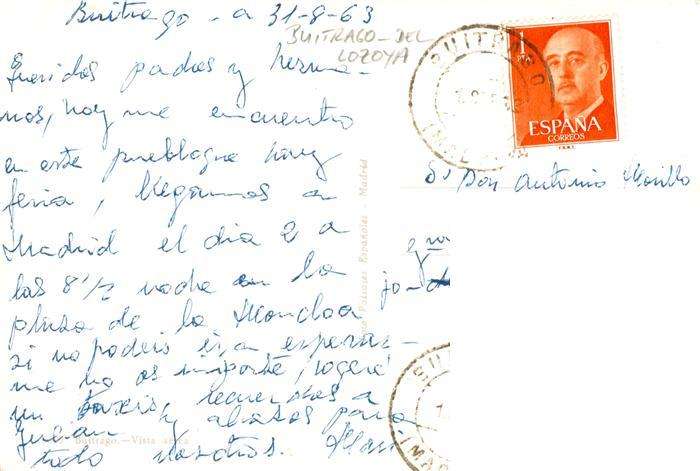 Buitrago - a 31-8-63
BUITRAGO-DEL
LOZOYA
Queridos padres y herma-
nos, hoy me encuentro
en este pueblo que hay
feria, llegamos a
Madrid el día 2 a
las 8 1/2 noche en la
plaza de la Moncloa
si no podéis ir a esperar-
me no os importe, cogeré
un taxis, recuerdos a
Julian y abrazos para
todo vosotros.
Buitrago.-Vista
Postales Españolas - Madrid
BUITRAGO
1 PTA
ESPAÑA
CORREOS
F.N.M.T.
Sr Don Antonio Morillo